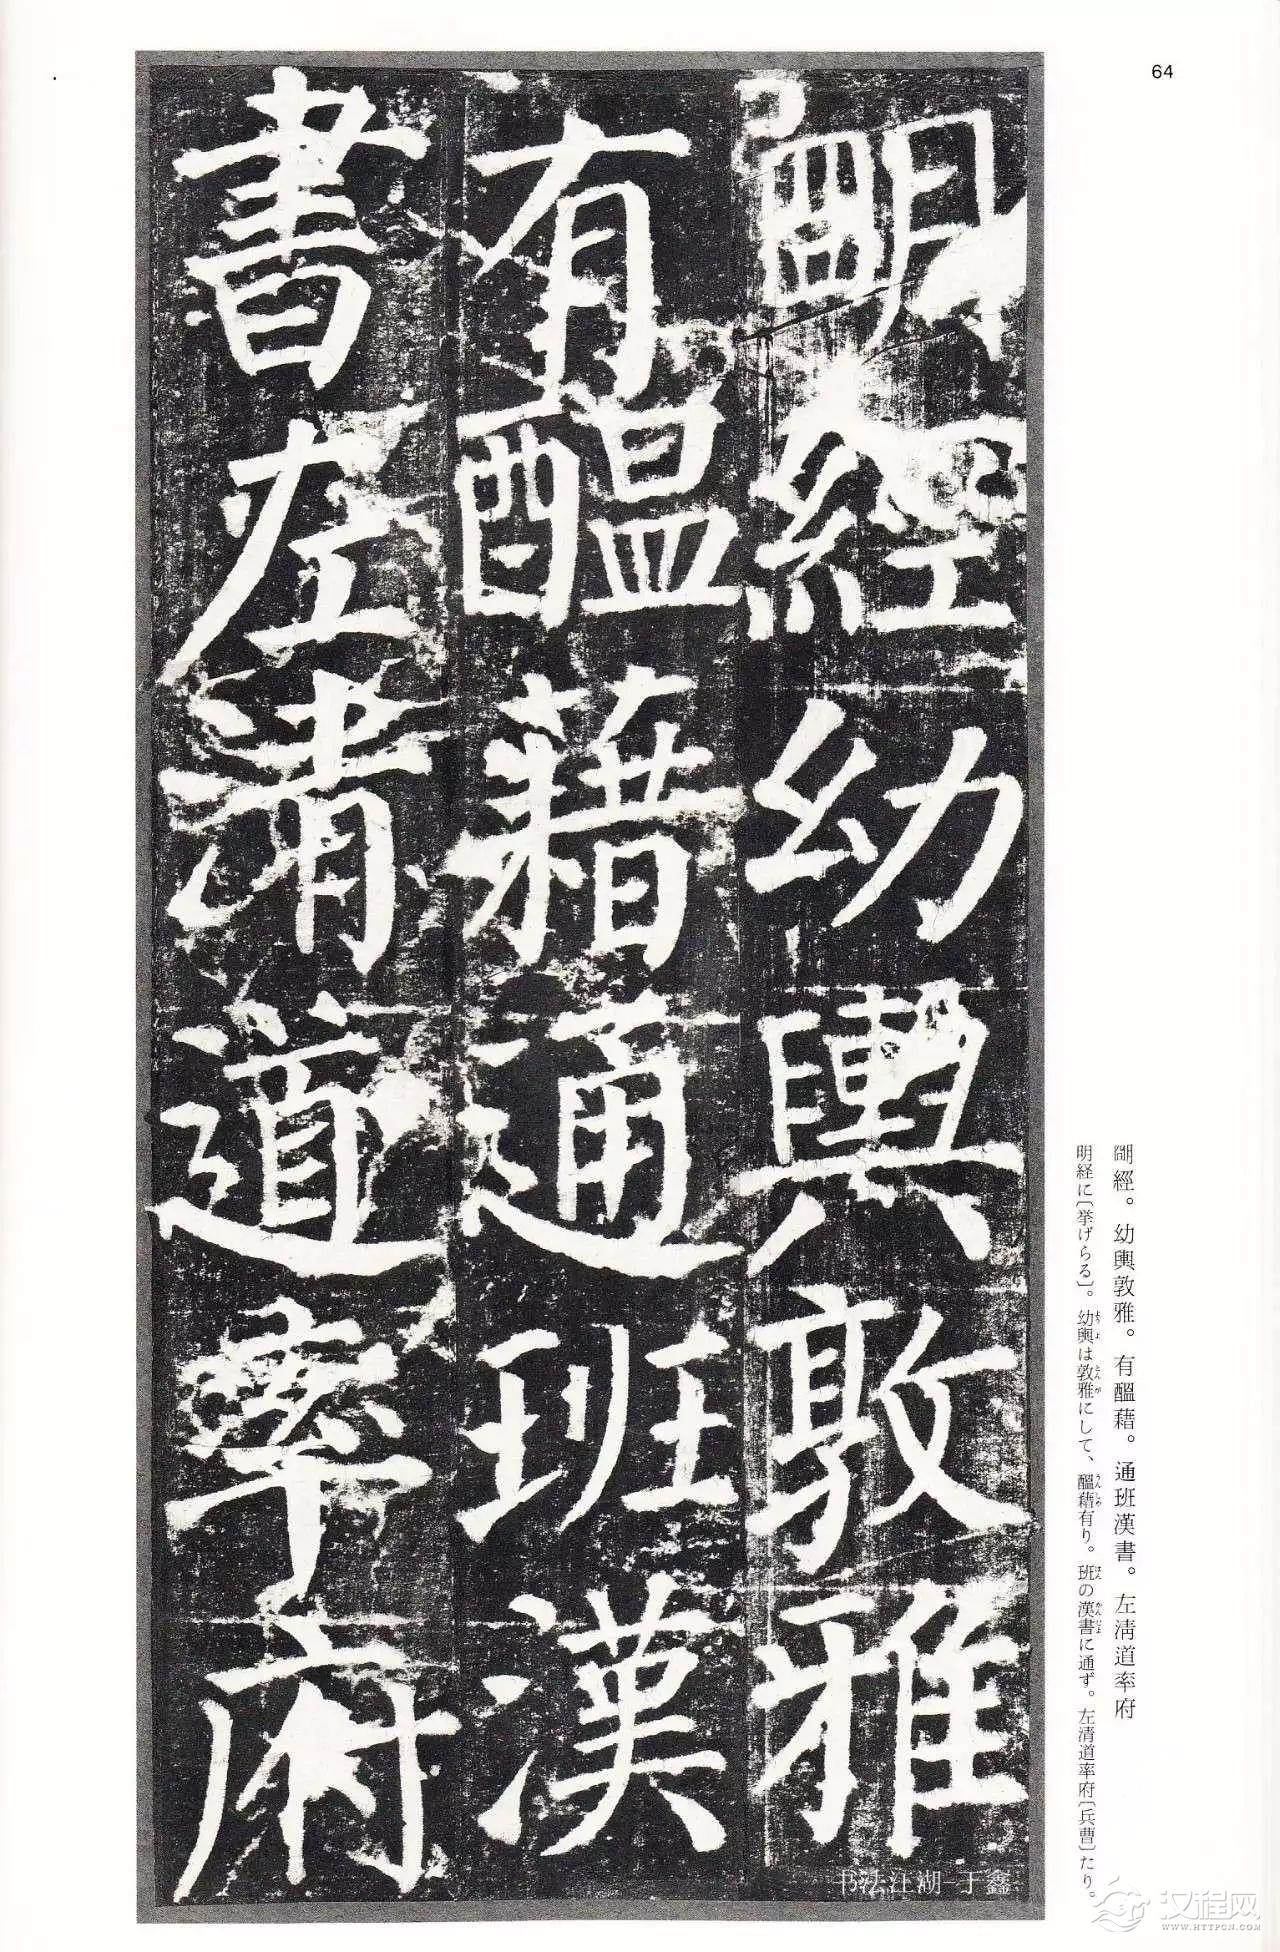 64
明經幼輿敦雅
有醞藉通班漢
書左清道率府
明經。幼輿敦雅。有醞藉。通班漢書。左清道率府
明経に〔挙げらる〕。幼輿は敦雅にして、醞藉有り。班の漢書に通ず。左清道率府〔兵曹〕たり。
书法江湖-于鑫
汉程网
WWW.HTTPCN.COM